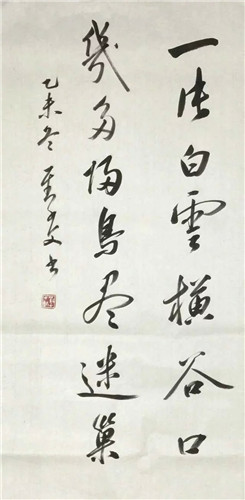 一片白雲橫谷口
幾多歸鳥尽迷巢
乙未冬 文书